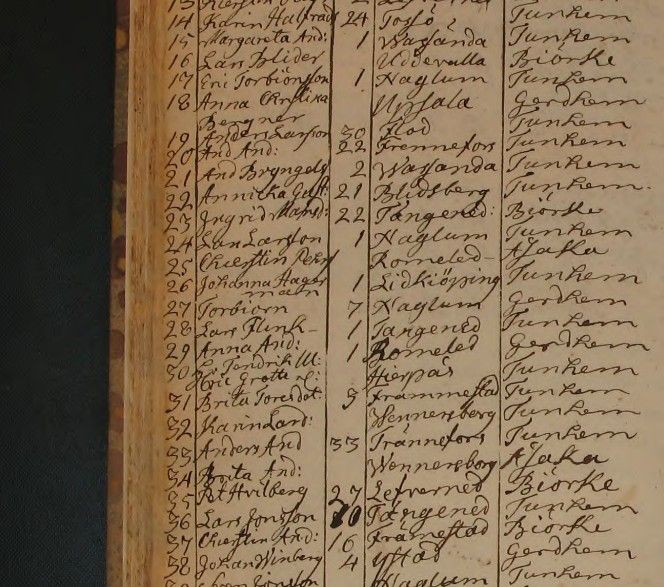 14 Karin Halfrad 24 Tossö Tunhem
15 Margareta And: 1 Wassända Tunhem
16 Lars Blider Uddevalla Biörske
17 Eric Torbiönsson 1 Naglum Tunhem
18 Anna Christina Upsala Gerdhem
Bergner
19 Anders Larsson 30 Flod Tunhem
20 And And: 22 Frennefors Tunhem
21 And Bryngels 2 Wassanda Tunhem
22 Annicka Gust: 21 Blidsberg Tunhem.
23 Ingrid Månsd: 22 Tångened: Biörske
24 Lars Larsson 1 Naglum Tunhem
25 Chierstin Romeled Asaka
26 Johanna Hager 1 Lidkiöping Tunhem
man
27 Torbiorn 7 Naglum Gerdhem
28 Lars Flink 1 Tangened Tunhem
29 Anna And: 1 Romeled Gerdhem
30 Hierpas Tunhem
Eric Grotte
31 Brita Toresdot: 3 Frammestad Tunhem
32 Karin Lard: Wennersberg Tunhem
33 Anders And 33 Trännefors Tunhem
34 Brita And: Wennersborg Asaka
35 Pet Hvilberg 27 Lefvened Biörske
36 Lars Jonsson 10 Tångened Tunhem
37 Chierstin And: 16 Främestad Biörske
38 Johan Winberg 4 Ystad Gerdhem
Naglum Tunhem